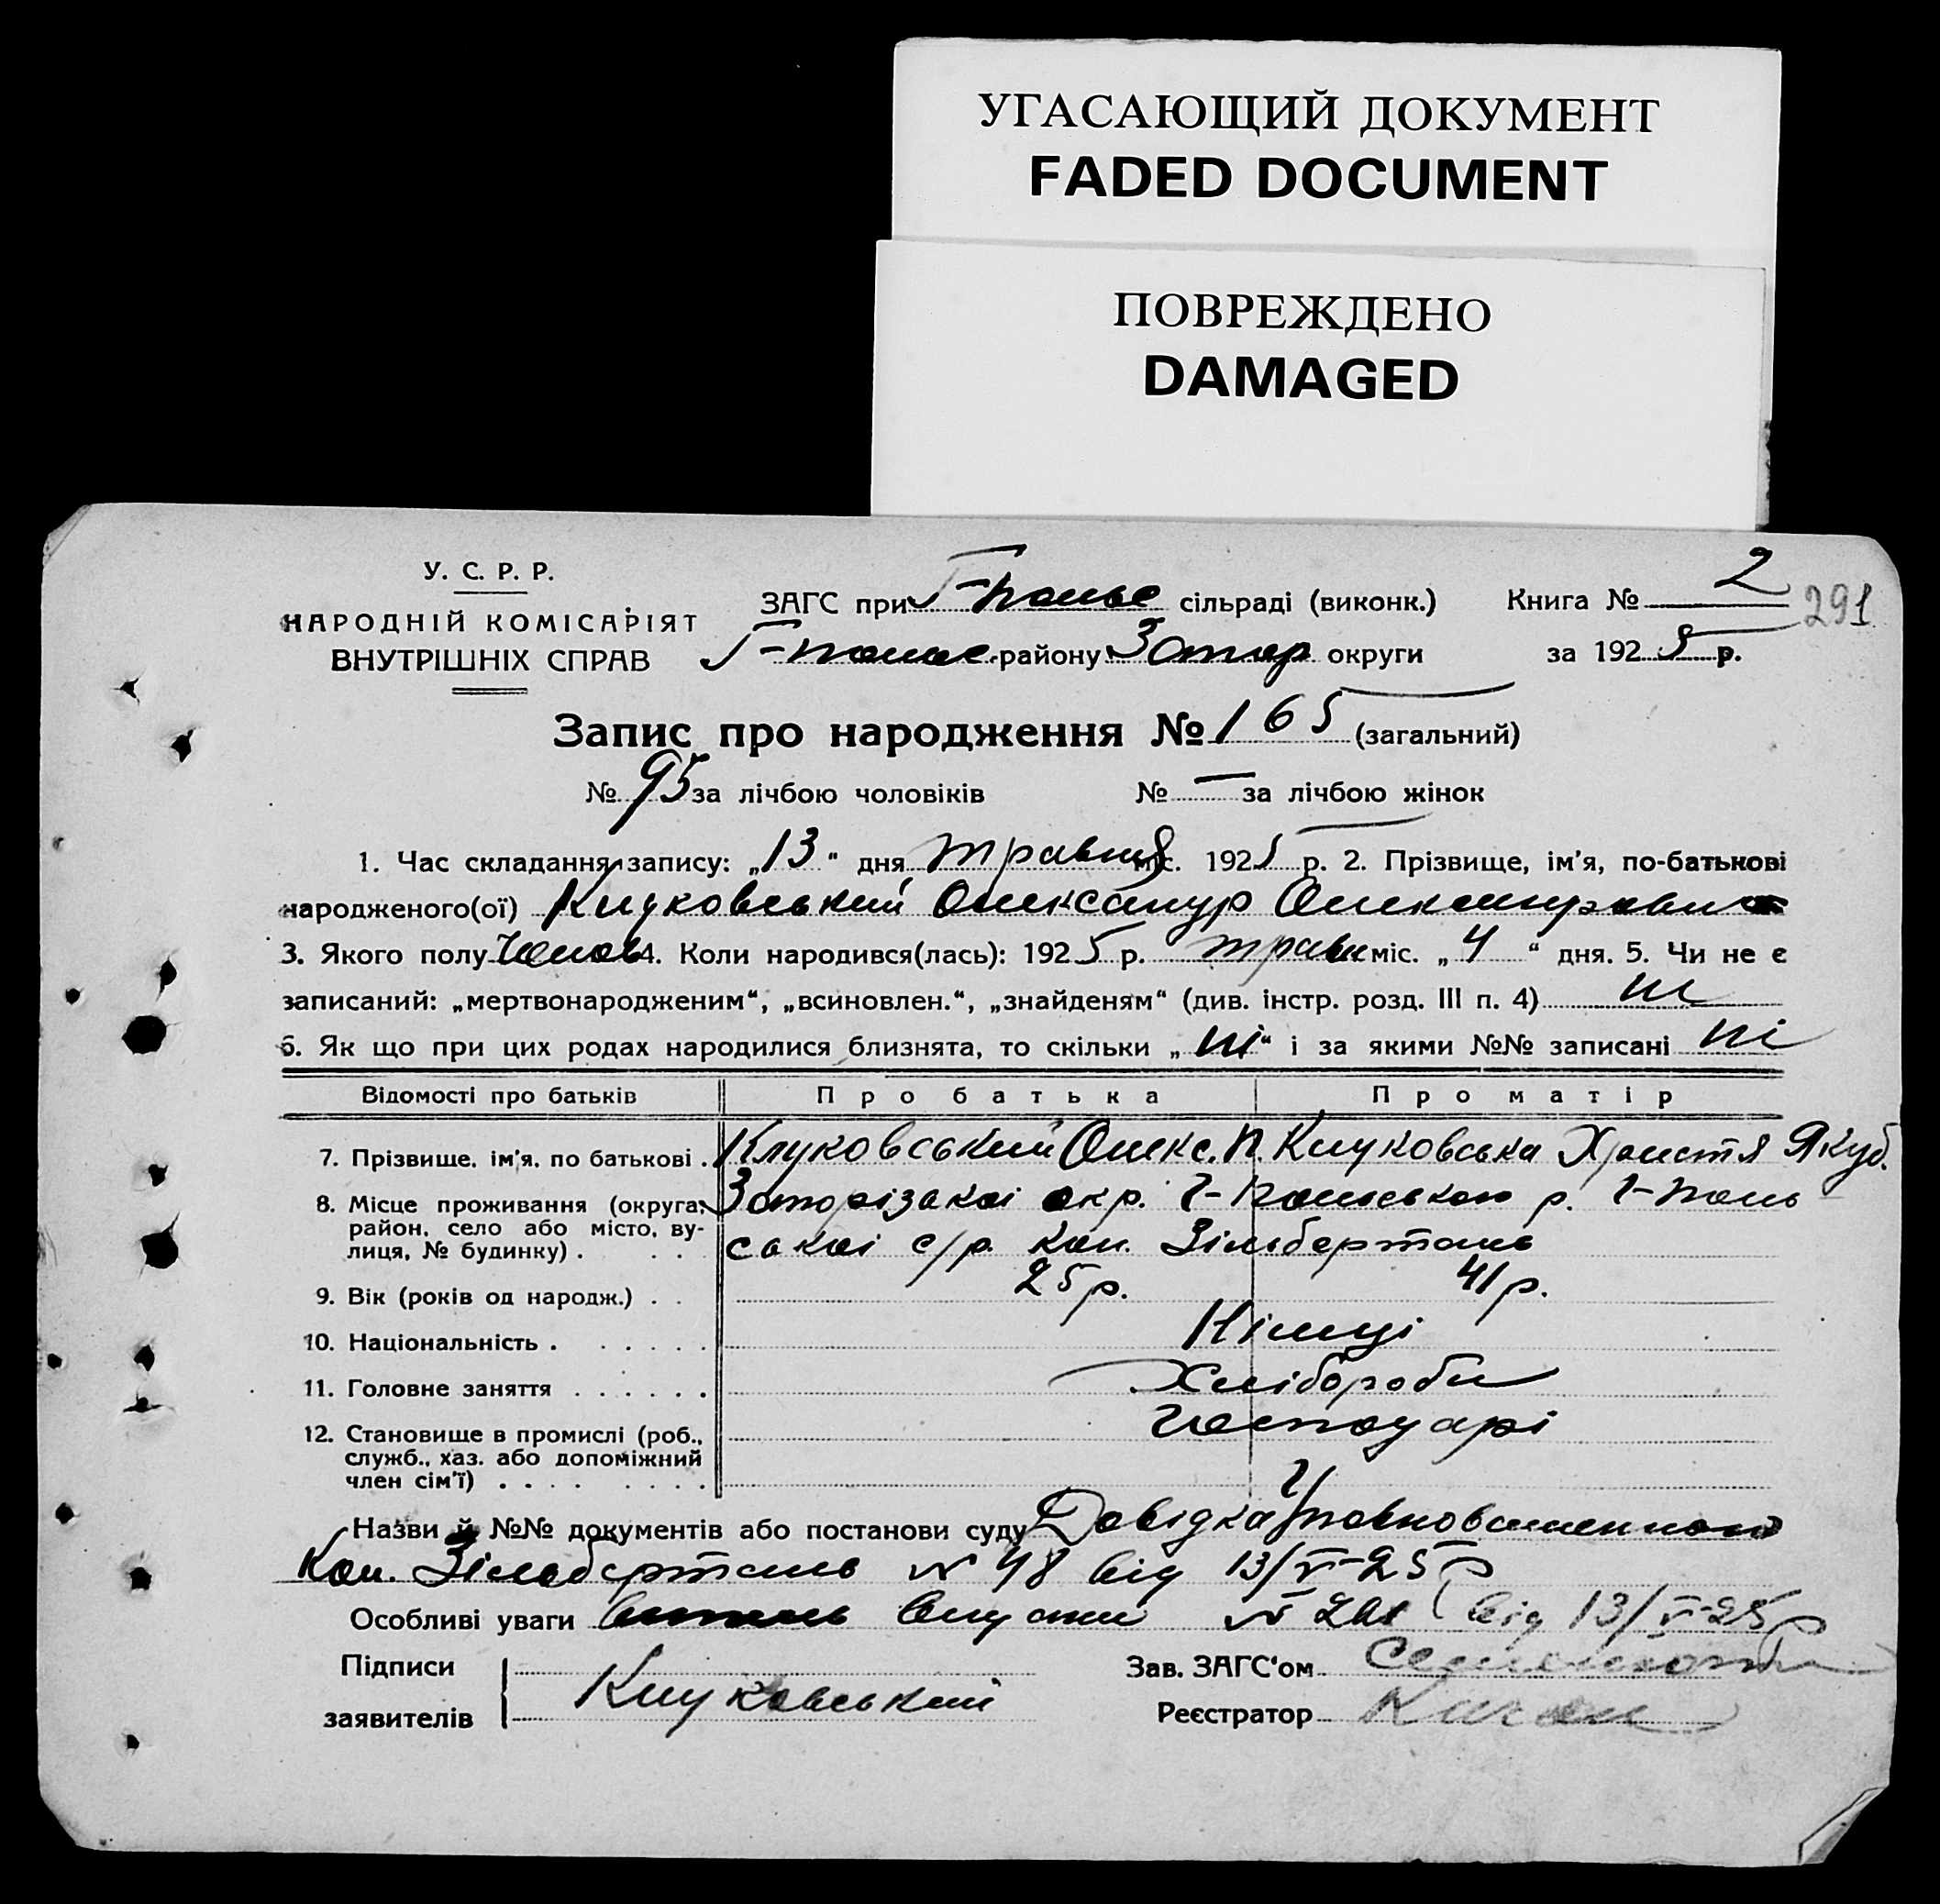 УГАСАЮЩИЙ ДОКУМЕНТ
FADED DOCUMENT
ПОВРЕЖДЕНО
DAMAGED
У. С. Р. Р.
НАРОДНІЙ КОМІСАРІЯТ
ВНУТРІШНІХ СПРАВ
ЗАГС при Г-Польс сільраді (виконк.)
Г-польс. району Запор округи
Книга № 2
291
за 1925 р.
Запис про народження № 165 (загальний)
№ 95 за лічбою чоловіків № — за лічбою жінок
1. Час складання запису: „13“ дня травня міс. 1925 р. 2. Прізвище, ім'я, по-батькові
народженого(ої) Клуковський Олександр Олександрович
3. Якого полу Чолов 4. Коли народився(лась): 1925 р. травн міс. „4“ дня. 5. Чи не є
записаний: „мертвонародженим“, „всиновлен.“, „знайденям“ (див. інстр. розд. III п. 4) ні
6. Як що при цих родах народилися близнята, то скільки „ні“ і за якими №№ записані ні
Відомості про батьків Про батька Про матір
7. Прізвище, ім'я, по батькові . Клуковський Олекс. П. Клуковська Христя Якуб.
8. Місце проживання (округа, район, село або місто, ву-лиця, № будинку) . . . Запорізакоі окр. Г-Польського р. Г-поль
сакоі с/р. кол. Зільберталь
9. Вік (років од народж.) . . 25 р. 41 р.
10. Національність . . . . . . Німці
11. Головне заняття . . . . . . Хлібороби
12. Становище в промислі (роб., служб., хаз. або допоміжний член сім'ї) . . . . . . . . Господарі
Назви й №№ документів або постанови суду Довідка Уповноваженного
Кол. Зільберталь № 48 від 13/V-25 р
Особливі уваги № від 13/V-25 р
Підписи
заявителів Клуковський
Зав. ЗАГС'ом
Реєстратор